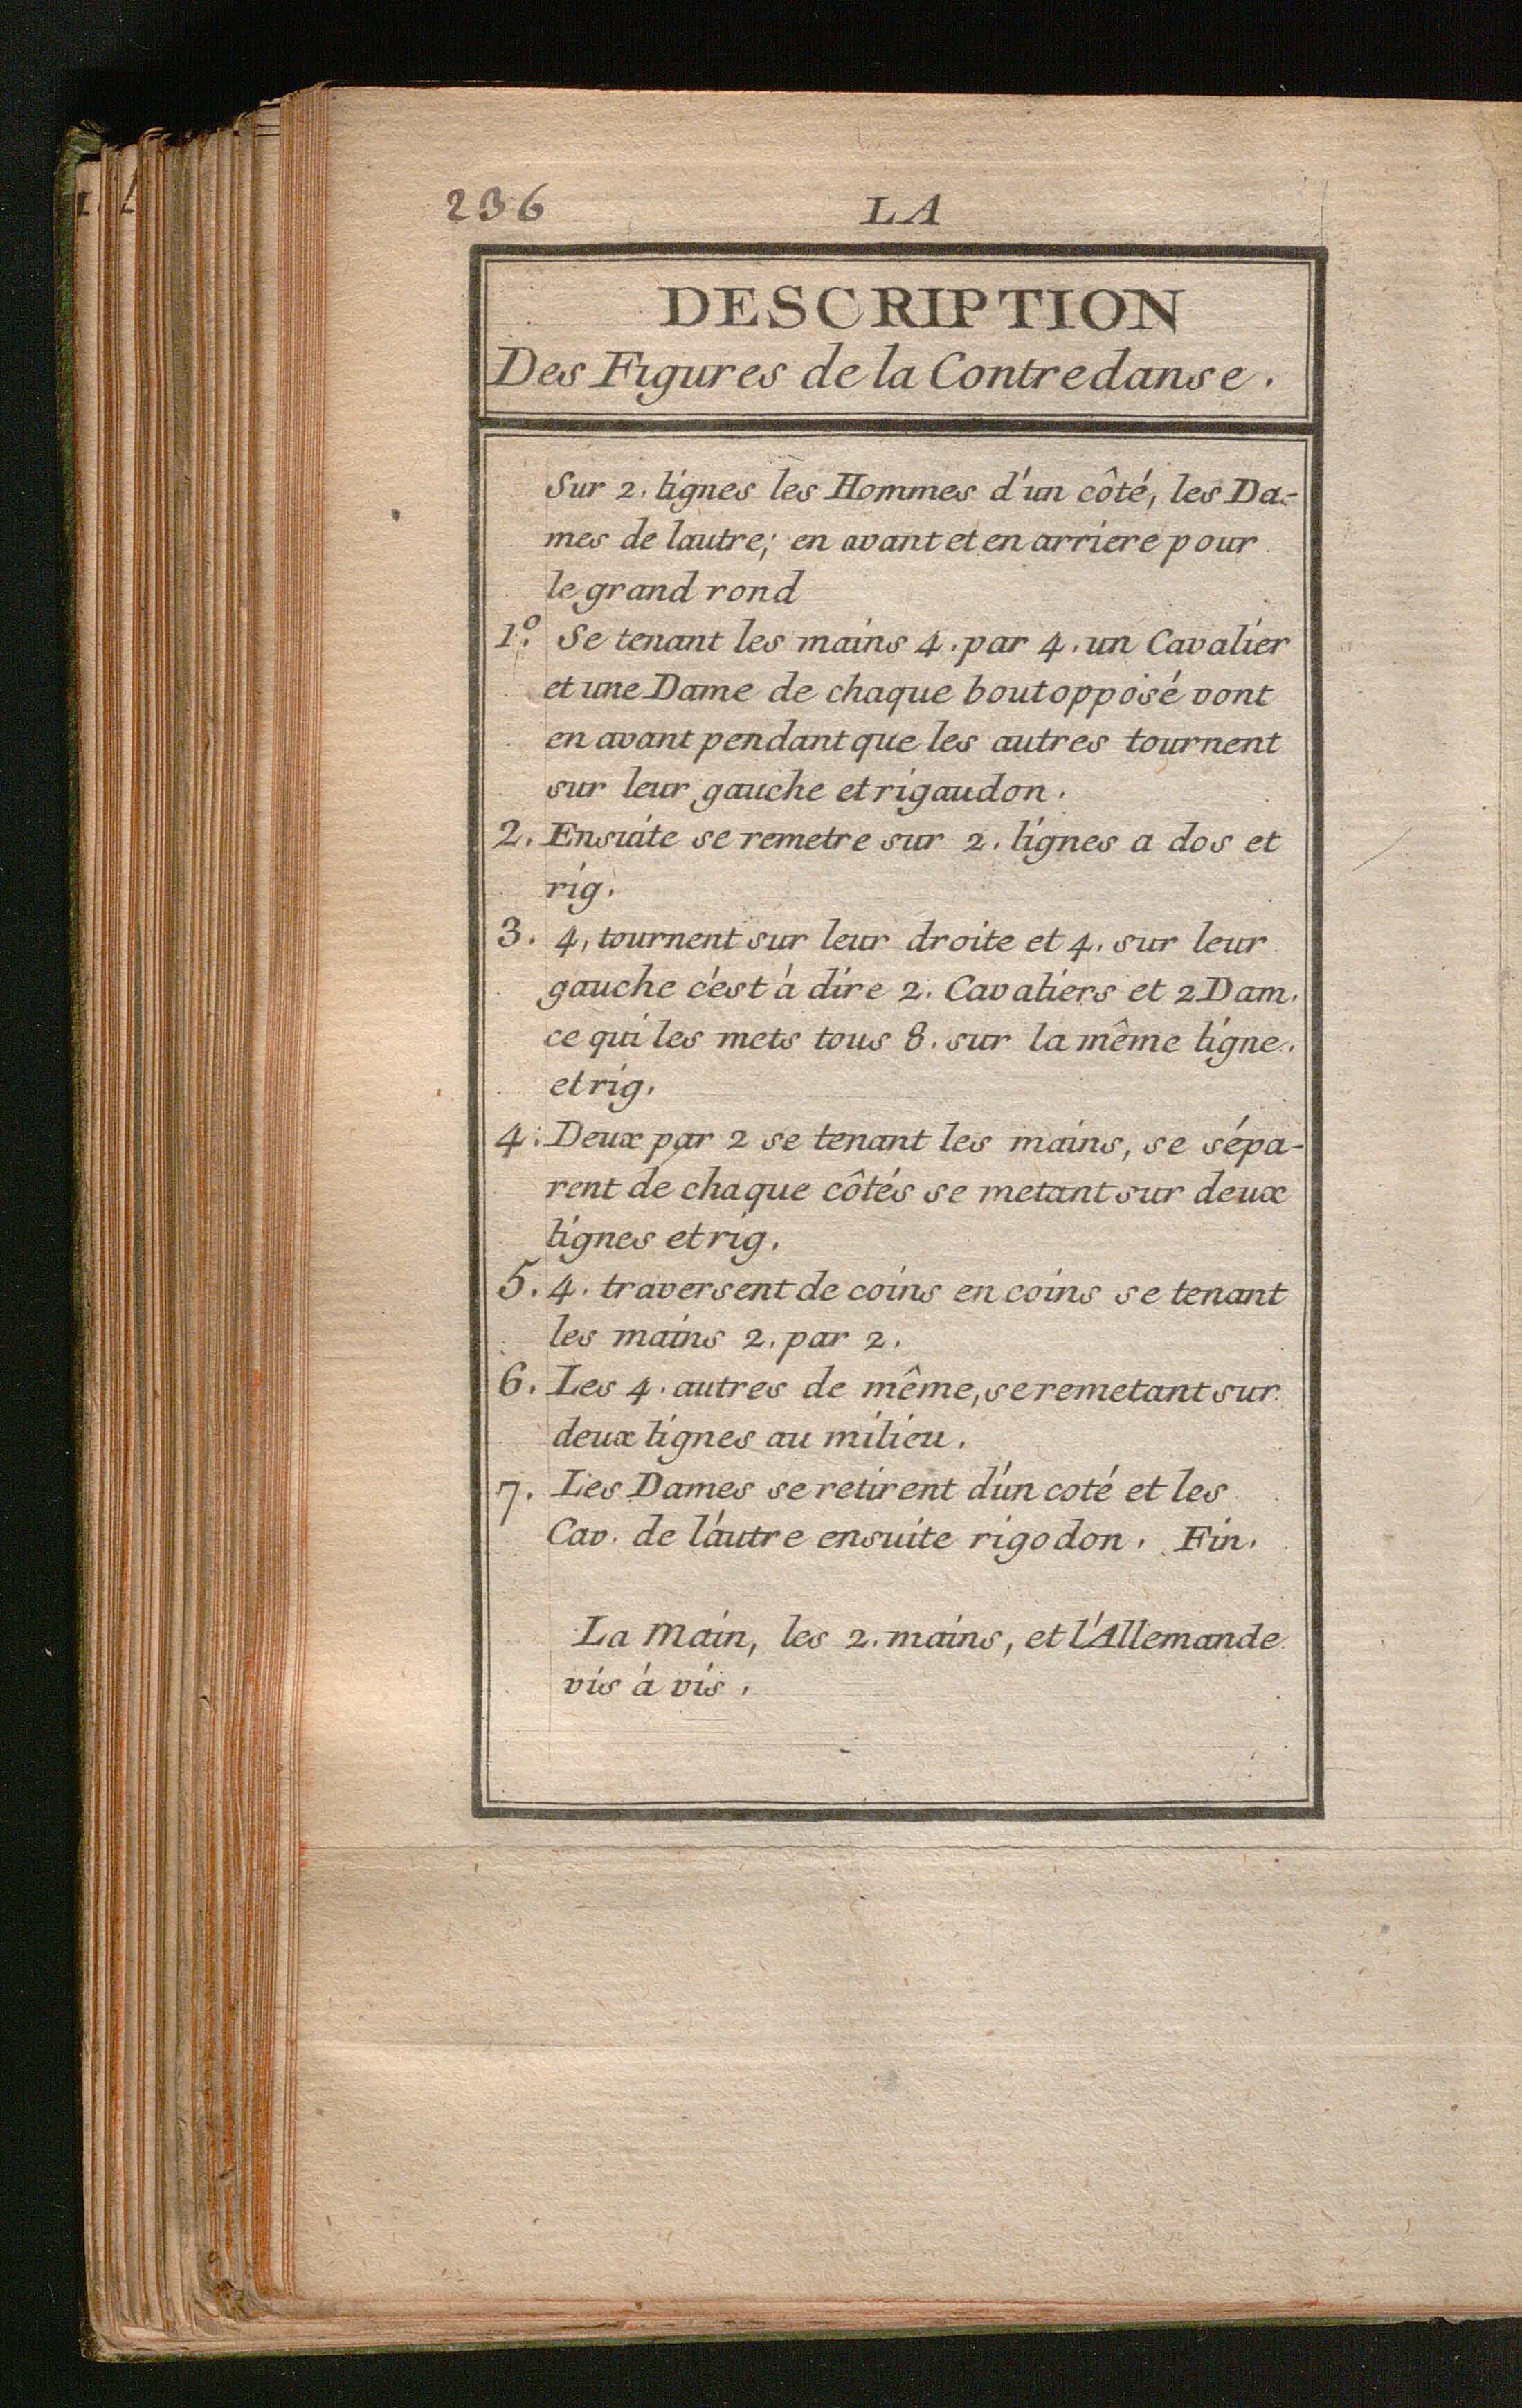 236
LA
DESCRIPTION
Des Figures de la Contredanse.
Sur 2. lignes les Hommes d'un côté, les Da-
mes de lautre; en avant et en arriere pour
le grand rond
1º. Se tenant les mains 4. par 4. un Cavalier
et une Dame de chaque bout opposé vont
en avant pendant que les autres tournent
sur leur gauche et rigaudon.
2. Ensuite se remetre sur 2. lignes a dos et
rig.
3. 4, tournent sur leur droite et 4. sur leur
gauche c'est à dire 2. Cavaliers et 2 Dam.
ce qui les mets tous 8. sur la même ligne.
et rig.
4. Deux par 2 se tenant les mains, se sépa-
rent de chaque côtés se metant sur deux
lignes et rig.
5. 4. traversent de coins en coins se tenant
les mains 2. par 2.
6. Les 4. autres de même, se remetant sur
deux lignes au milieu.
7. Les Dames se retirent d'un coté et les
Cav. de l'autre ensuite rigodon. Fin.
La Main, les 2. mains, et l'Allemande
vis à vis.